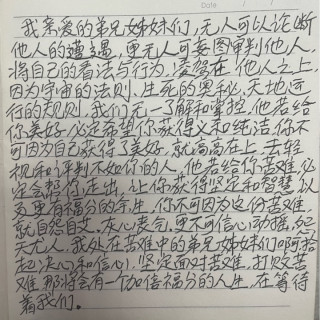 Date
我亲爱的弟兄姊妹们，无人可以论断
他人的遭遇，更无人可妄图审判他人，
将自己的看法与行为，凌驾在他人之上，
因为宇宙的法则，生死的奥秘，天地运
行的规则，我们无一了解和掌控，他若给
你美好，必定希望你获得义和纯洁，你不
可因为自己获得了美好，就高高在上，去轻
视和评判不如你的人，他若给你苦难，必
定会帮你走出，让你获得坚定和智慧，以
及更有福分的余生，你不可因为这份苦难，
就自怨自艾，灰心丧气，更不可信心动摇，怨
天尤人，我处在苦难中的弟兄姊妹们啊，拾
起决心和信心，坚定面对苦难，打败苦
难，那将会有一个加倍福分的人生，在等待
着我们。